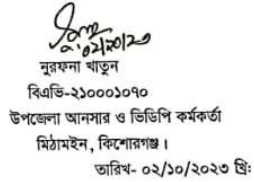 ০২/১০/২৩
নুরফনা খাতুন
বিএভি-২১০০০১০৭০
উপজেলা আনসার ও ভিডিপি কর্মকর্তা
মিঠামইন, কিশোরগঞ্জ।
তারিখ- ০২/১০/২০২৩ খ্রিঃ